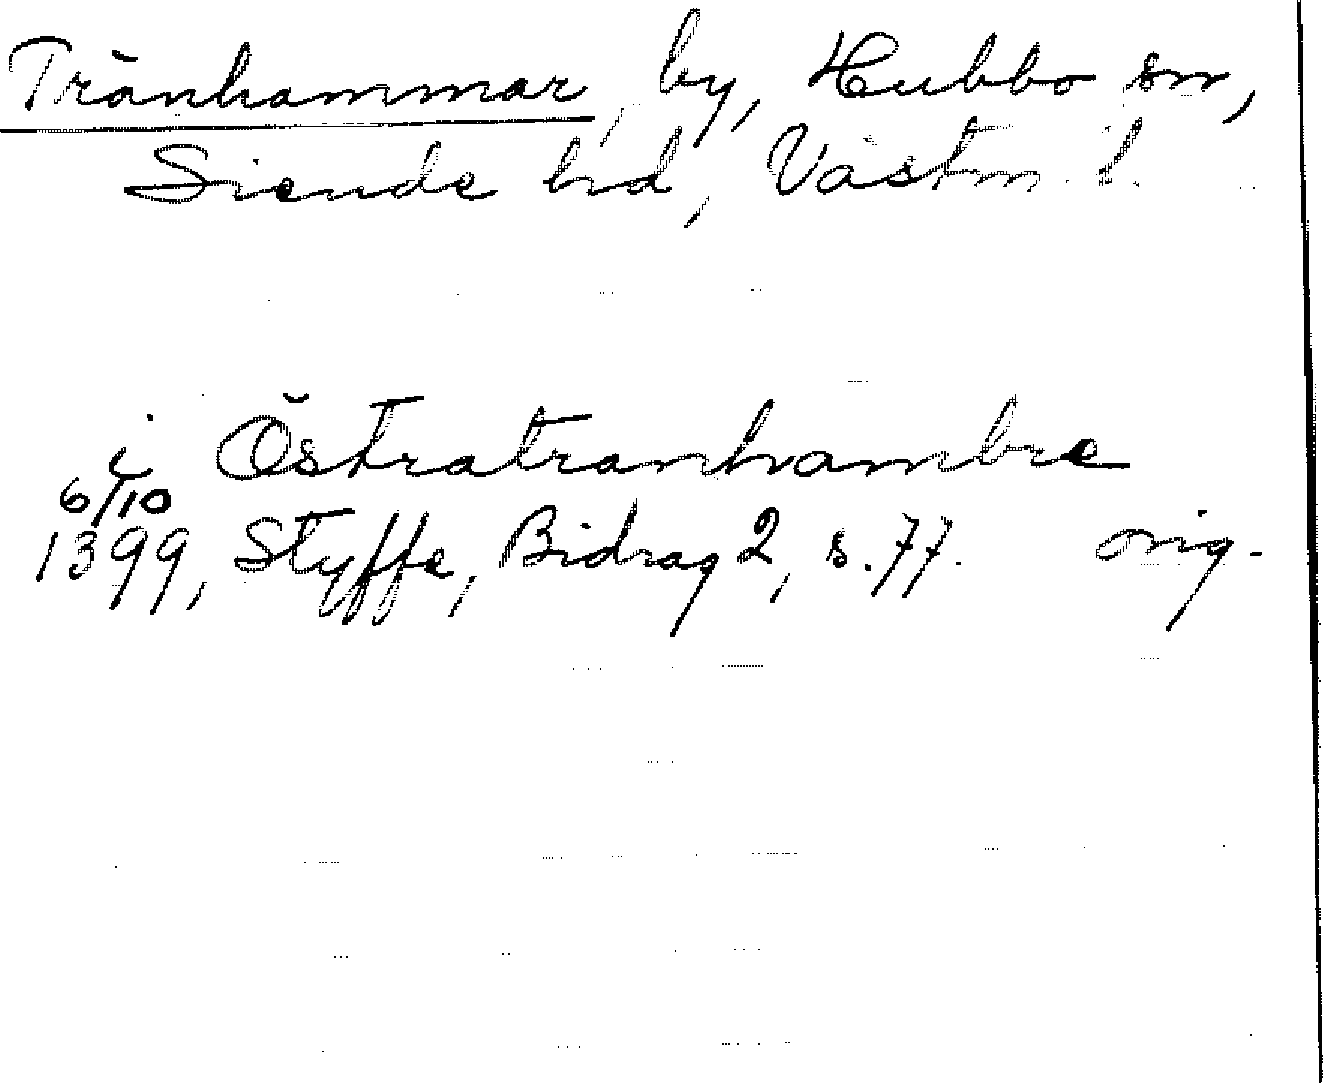 Trånhammar, by, Hubbo sn,
Siende hd, Västm. l.
i Östratranhambre
6/10
1399, Styffe, Bidrag 2, s. 77. orig.